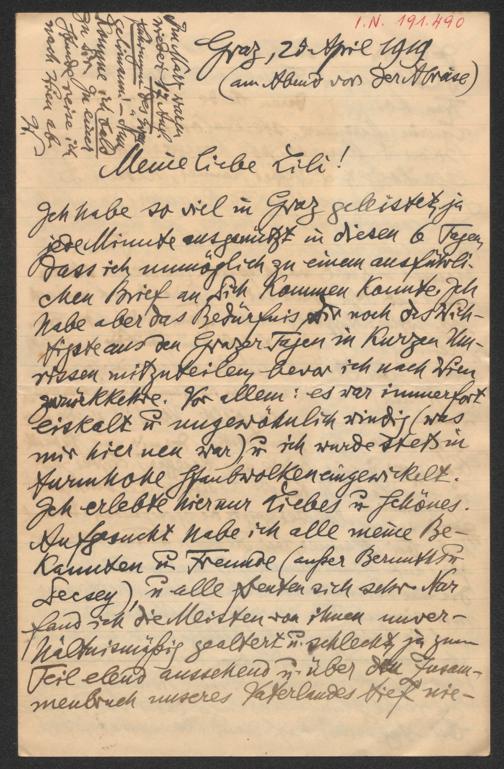 I.N. 191.490
Graz, 28. April 1919
(am Abend vor der Abreise)
Meine liebe Lili!
Ich habe so viel in Graz geleistet, ja
jede Minute ausgenützt in diesen 6 Tagen,
dass ich unmöglich zu einem ausführli-
chen Brief an Dich kommen konnte. Ich
habe aber das Bedürfnis Dir noch das Wich-
tigste aus den Grazer Tagen in kurzen Um-
rissen mitzuteilen, bevor ich nach Wien
zurückkehre. Vor allem: es war immerfort
eiskalt u. ungewöhnlich windig (was
mir hier neu war) u. ich wurde stets in
turmhohe Staubwolken eingewickelt.
Ich erlebte hier nur Liebes u. Schönes.
Aufgesucht habe ich alle meine Be-
kannten u. Freunde (außer u.
Decsey), u. alle freuten sich sehr. Nur
fand ich die Meisten von ihnen unver-
hältnismäßig gealtert u. schlecht, ja zum
Teil elend aussehend u. über den Zusam-
menbruch unseres Vaterlandes tief nie-
Im März waren
wieder
ich bald
In einer
Stunde reise ich
nach Wien ab.